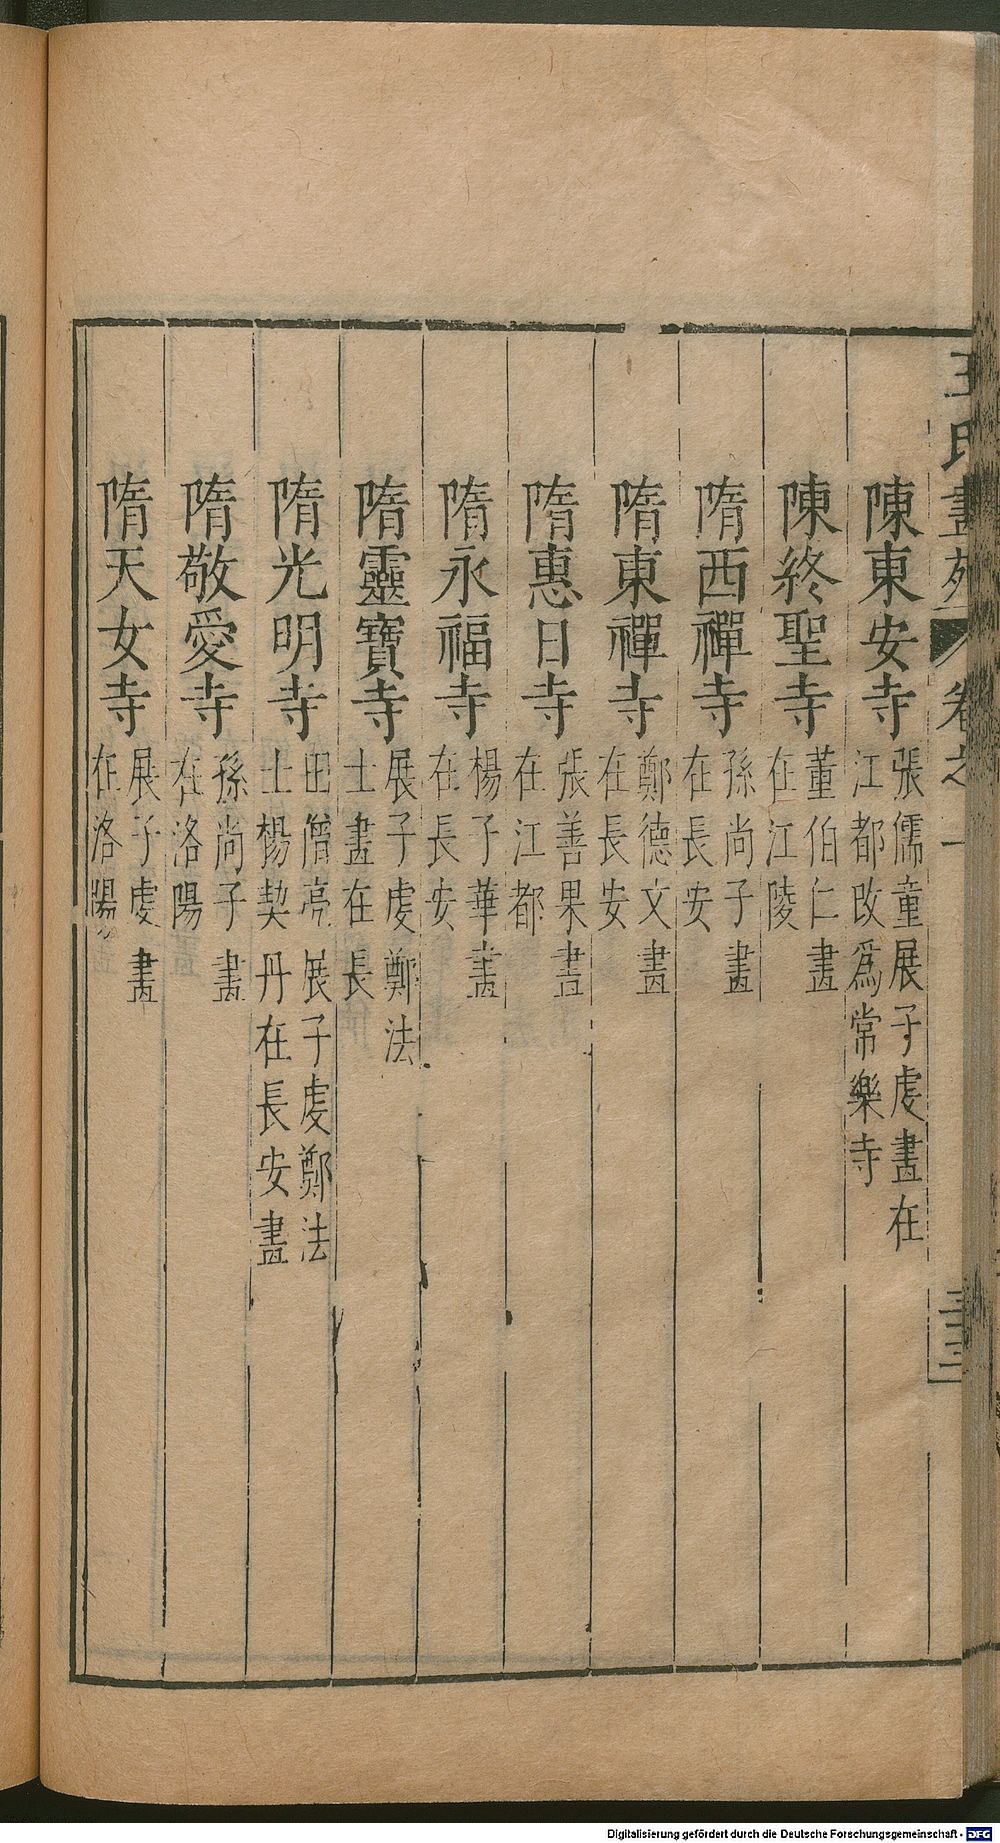 王氏畫苑 卷之一 三三
陳東安寺 張儒童展子虔畫在
江都改爲常樂寺
陳終聖寺 董伯仁畫
在江陵
隋西禪寺 孫尚子畫
在長安
隋東禪寺 鄭德文畫
在長安
隋惠日寺 張善果畫
在江都
隋永福寺 楊子華畫
在長安
隋靈寶寺 展子虔鄭法
士畫在長
隋光明寺 田僧亮展子虔鄭法
士楊契丹在長安畫
隋敬愛寺 孫尚子畫
在洛陽
隋天女寺 展子虔畫
在洛陽
Digitalisierung gefördert durch die Deutsche Forschungsgemeinschaft - DFG